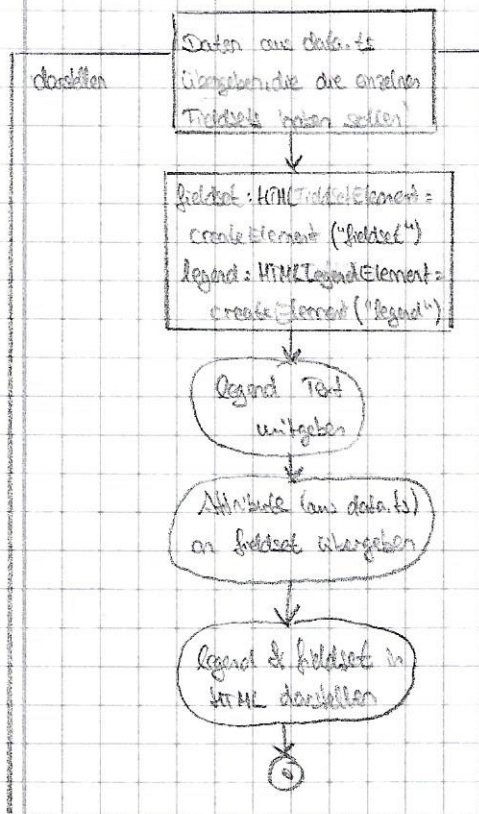 darstellen
Daten aus data.ts
übergeben, die die einzelnen
Fieldsets haben sollen
fieldset: HTMLFieldsetElement =
createElement ("fieldset")
legend: HTMLLegendElement =
createElement ("legend")
legend Text
mitgeben
Attribute (aus data.ts)
an fieldset übergeben
legend & fieldset in
HTML darstellen